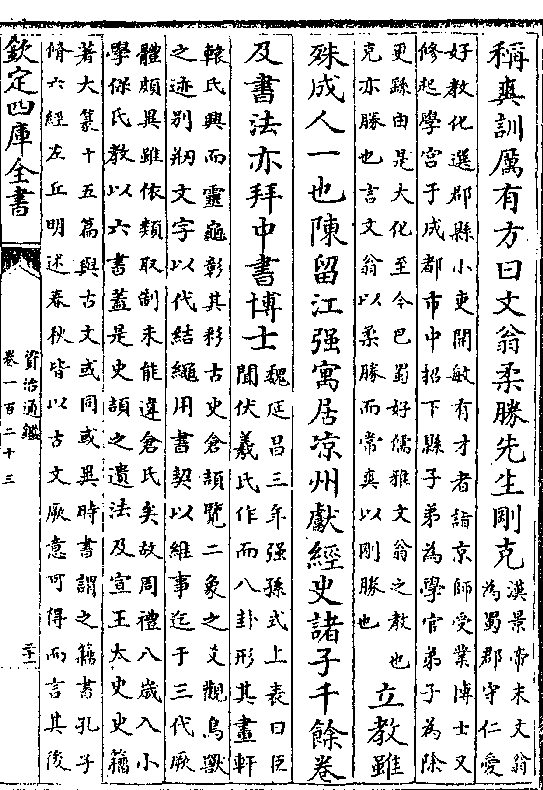 稱爽訓厲有方曰文翁柔勝先生剛克
漢景帝末文翁
為蜀郡守仁愛
好教化選郡縣小吏開敏有才者詣京師受業博士又
修起學宮于成都市中招下縣子弟為學官弟子為除
更繇由是大化至今巴蜀好儒雅文翁之教也
克亦勝也言文翁以柔勝而常爽以剛勝也
立教雖
殊成人一也陳留江强寓居涼州獻經史諸子千餘卷
及書法亦拜中書博士
魏延昌三年强孫式上表曰臣
聞伏羲氏作而八卦形其畫軒
轅氏興而靈龜彰其彩古史倉頡覽二象之爻觀鳥獸
之迹別刱文字以代結繩用書契以維事迄于三代厥
體頗異雖依類取制未能違倉氏矣故周禮八歲入小
學保氏教以六書蓋是史頡之遺法及宣王太史史籀
著大篆十五篇與古文或同或異時書謂之籀書孔子
脩六經左丘明述春秋皆以古文厥意可得而言其後
欽定四庫全書
資治通鑑
卷一百二十三